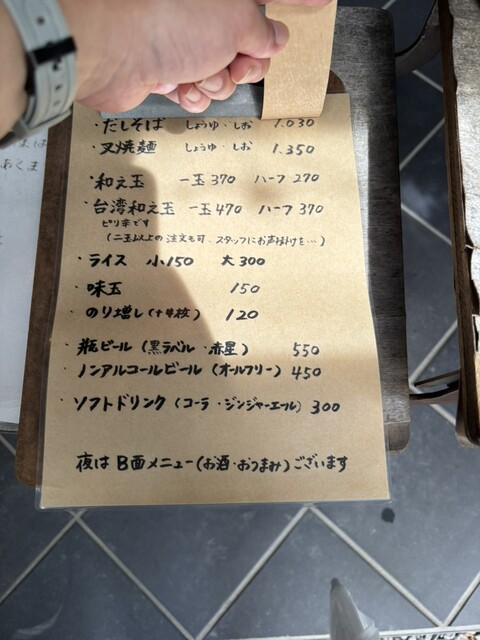 ・だしそば しょうゆ・しお 1.030
・叉焼麺 しょうゆ・しお 1.350
・和え玉 一玉370 ハーフ270
・台湾和え玉 一玉470 ハーフ370
ピリ辛です
(二玉以上の注文も可、スタッフにお声掛けを…)
・ライス 小150 大300
・味玉 150
・のり増し(+4枚) 120
・瓶ビール(黒ラベル・赤星) 550
・ノンアルコールビール(オールフリー) 450
・ソフトドリンク(コーラ・ジンジャーエール) 300
夜はB面メニュー(お酒・おつまみ)ございます